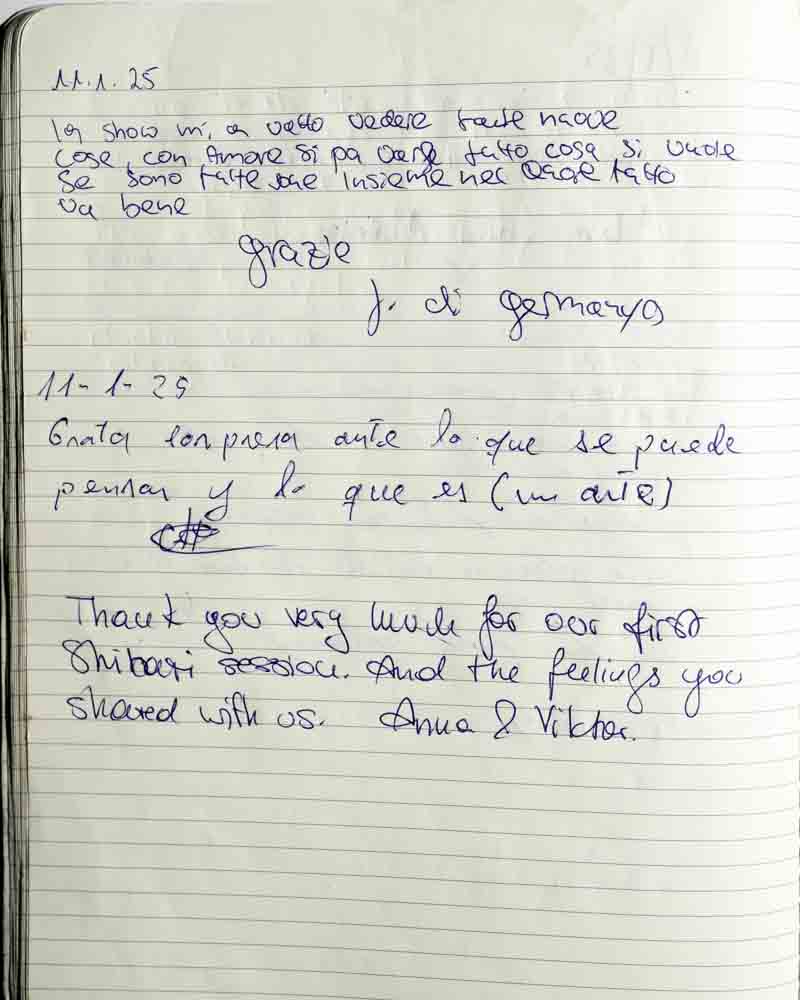 11.1.25
la show mi, a vatto vedere tante nuove
cose, con Amore si pa tutto cosa si vuole
se sono tutte insieme nel tutto
va bene
grazie
J. di germanya
11-1-25
Grata sorpresa ante lo que se puede
pensar y lo que es (un arte)
Thank you very much for our first
Shibari session. And the feelings you
shared with us. Anna & Viktor.